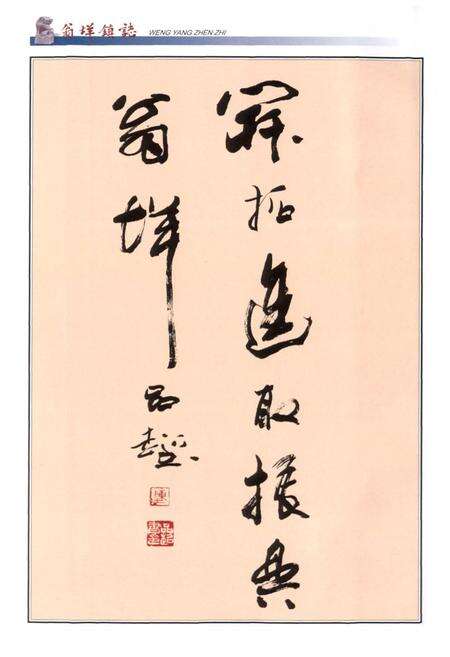 翁垟鎮誌 WENG YANG ZHEN ZHI
開拓進取振興
翁垟